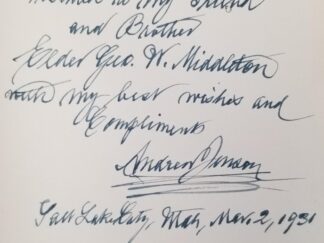 to my Friend
and Brother
Elder Geo. W. Middleton
with my best wishes and
Compliments
Andrew Jenson
Salt Lake City, Utah, Mar. 2, 1931